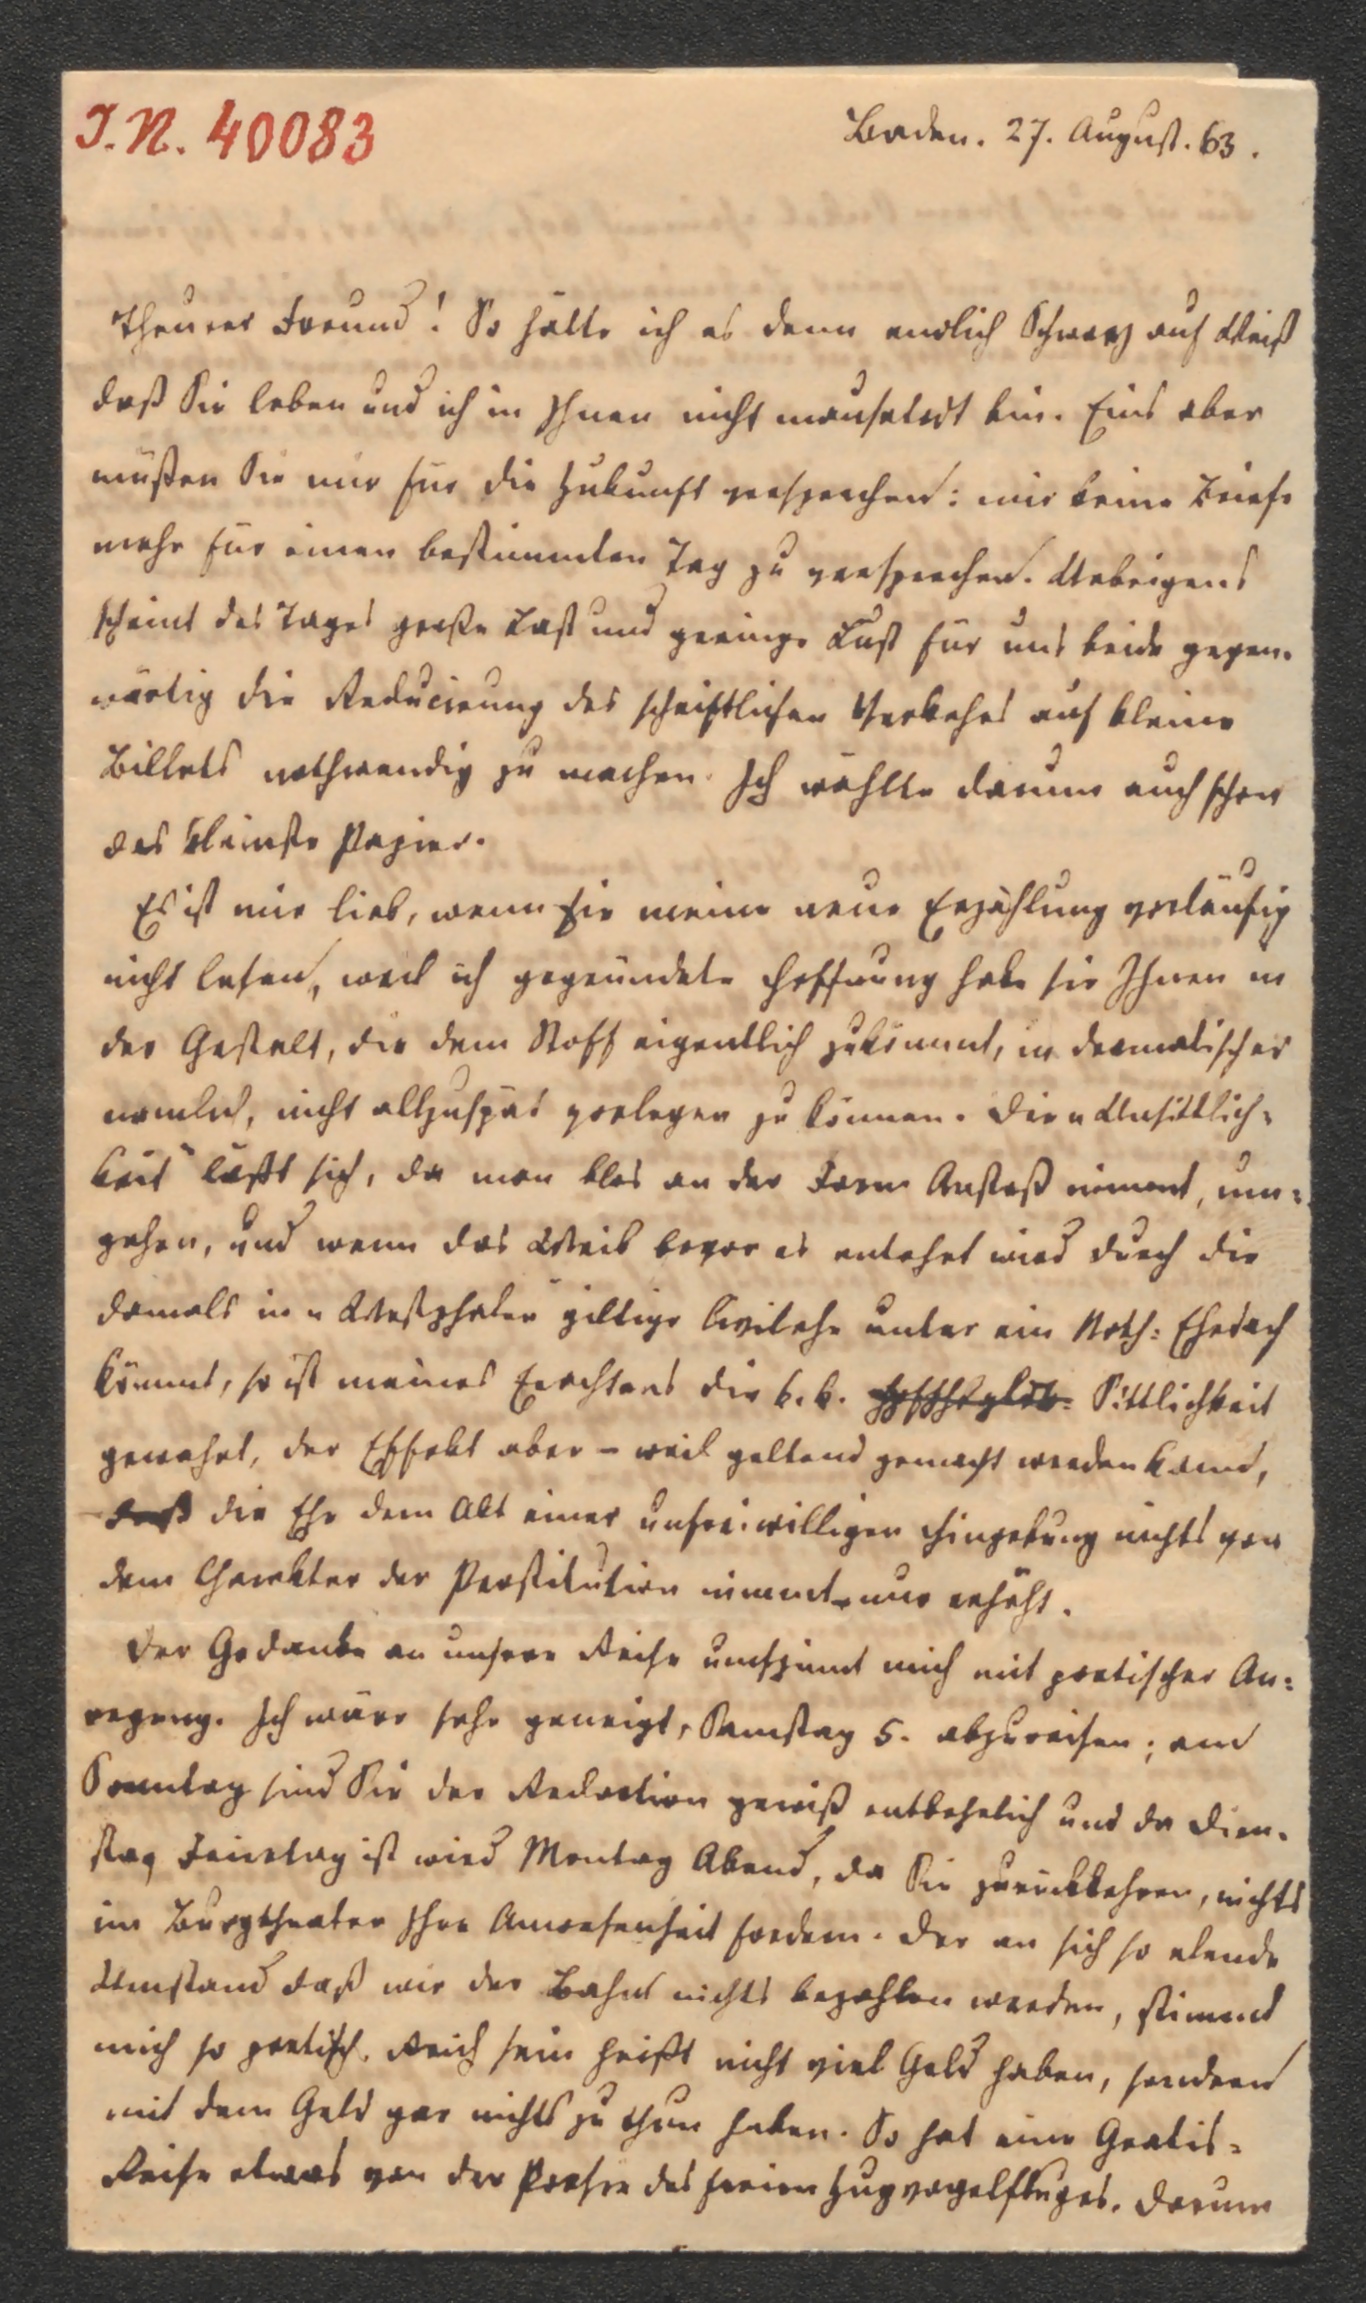 I. N. 40083
Baden. 27. August. 63.
Theurer Freund! So hätte ich es denn endlich Schwarz auf Weiß
daß Sie leben und ich in Ihnen nicht mausetodt bin. Eins aber
müßen Sie mir für die Zukunft versprechen: mir keine Briefe
mehr für einen bestimmten Tag zu versprechen. Uebrigens
scheint des Tages große Last und geringe Lust für uns beide gegen-
wärtig die Reducirung des schriftlichen Verkehrs auf kleine
Billets nothwendig zu machen. Ich wählte darum auch schon
das kleinste Papier.
Es ist mir lieb, wenn Sie meine neue Erzählung vorläufig
nicht lesen, weil ich gegründete Hoffnung habe sie Ihnen in
der Gestalt, die dem Stoff eigentlich zukömmt, in dramatischer
nämlich, nicht allzuspät vorlegen zu können. Die „Unsittlich-
keit“ läßt sich, da man blos an der Form Anstoß nimmt, um-
gehen, und wenn das Weib bevor es entehrt wird durch die
damals in „Westphalen“ giltige Civilehe unter ein Noth-Ehedach
kömmt, so ist meines Erachtens die k. k. Sittlichkeit
gewahrt, der Effekt aber – weil geltend gemacht werden kann,
daß die Ehe dem Akt einer unfreiwilligen Hingebung nichts von
dem Charakter der Prostitution nimmt – nur erhöht.
Der Gedanke an unsere Reise umspinnt mich mit poetischer An-
regung. Ich wäre sehr geneigt, Samstag 5. abzureisen; am
Sonntag sind Sie der Redaction gewiß entbehrlich und da Dien-
stag Feiertag ist wird Montag Abend, da Sie zurückkehren, nichts
im Burgtheater Ihre Anwesenheit fordern. Der an sich so elende
Umstand daß wir der Bahn nichts bezahlen werden, stimmt
mich so poetisch. Reich sein heißt nicht viel Geld haben, sondern
mit dem Geld gar nichts zu thun haben. So hat eine Gratis-
Reise etwas von der Poesie des freien Zugvogelfluges. Darum